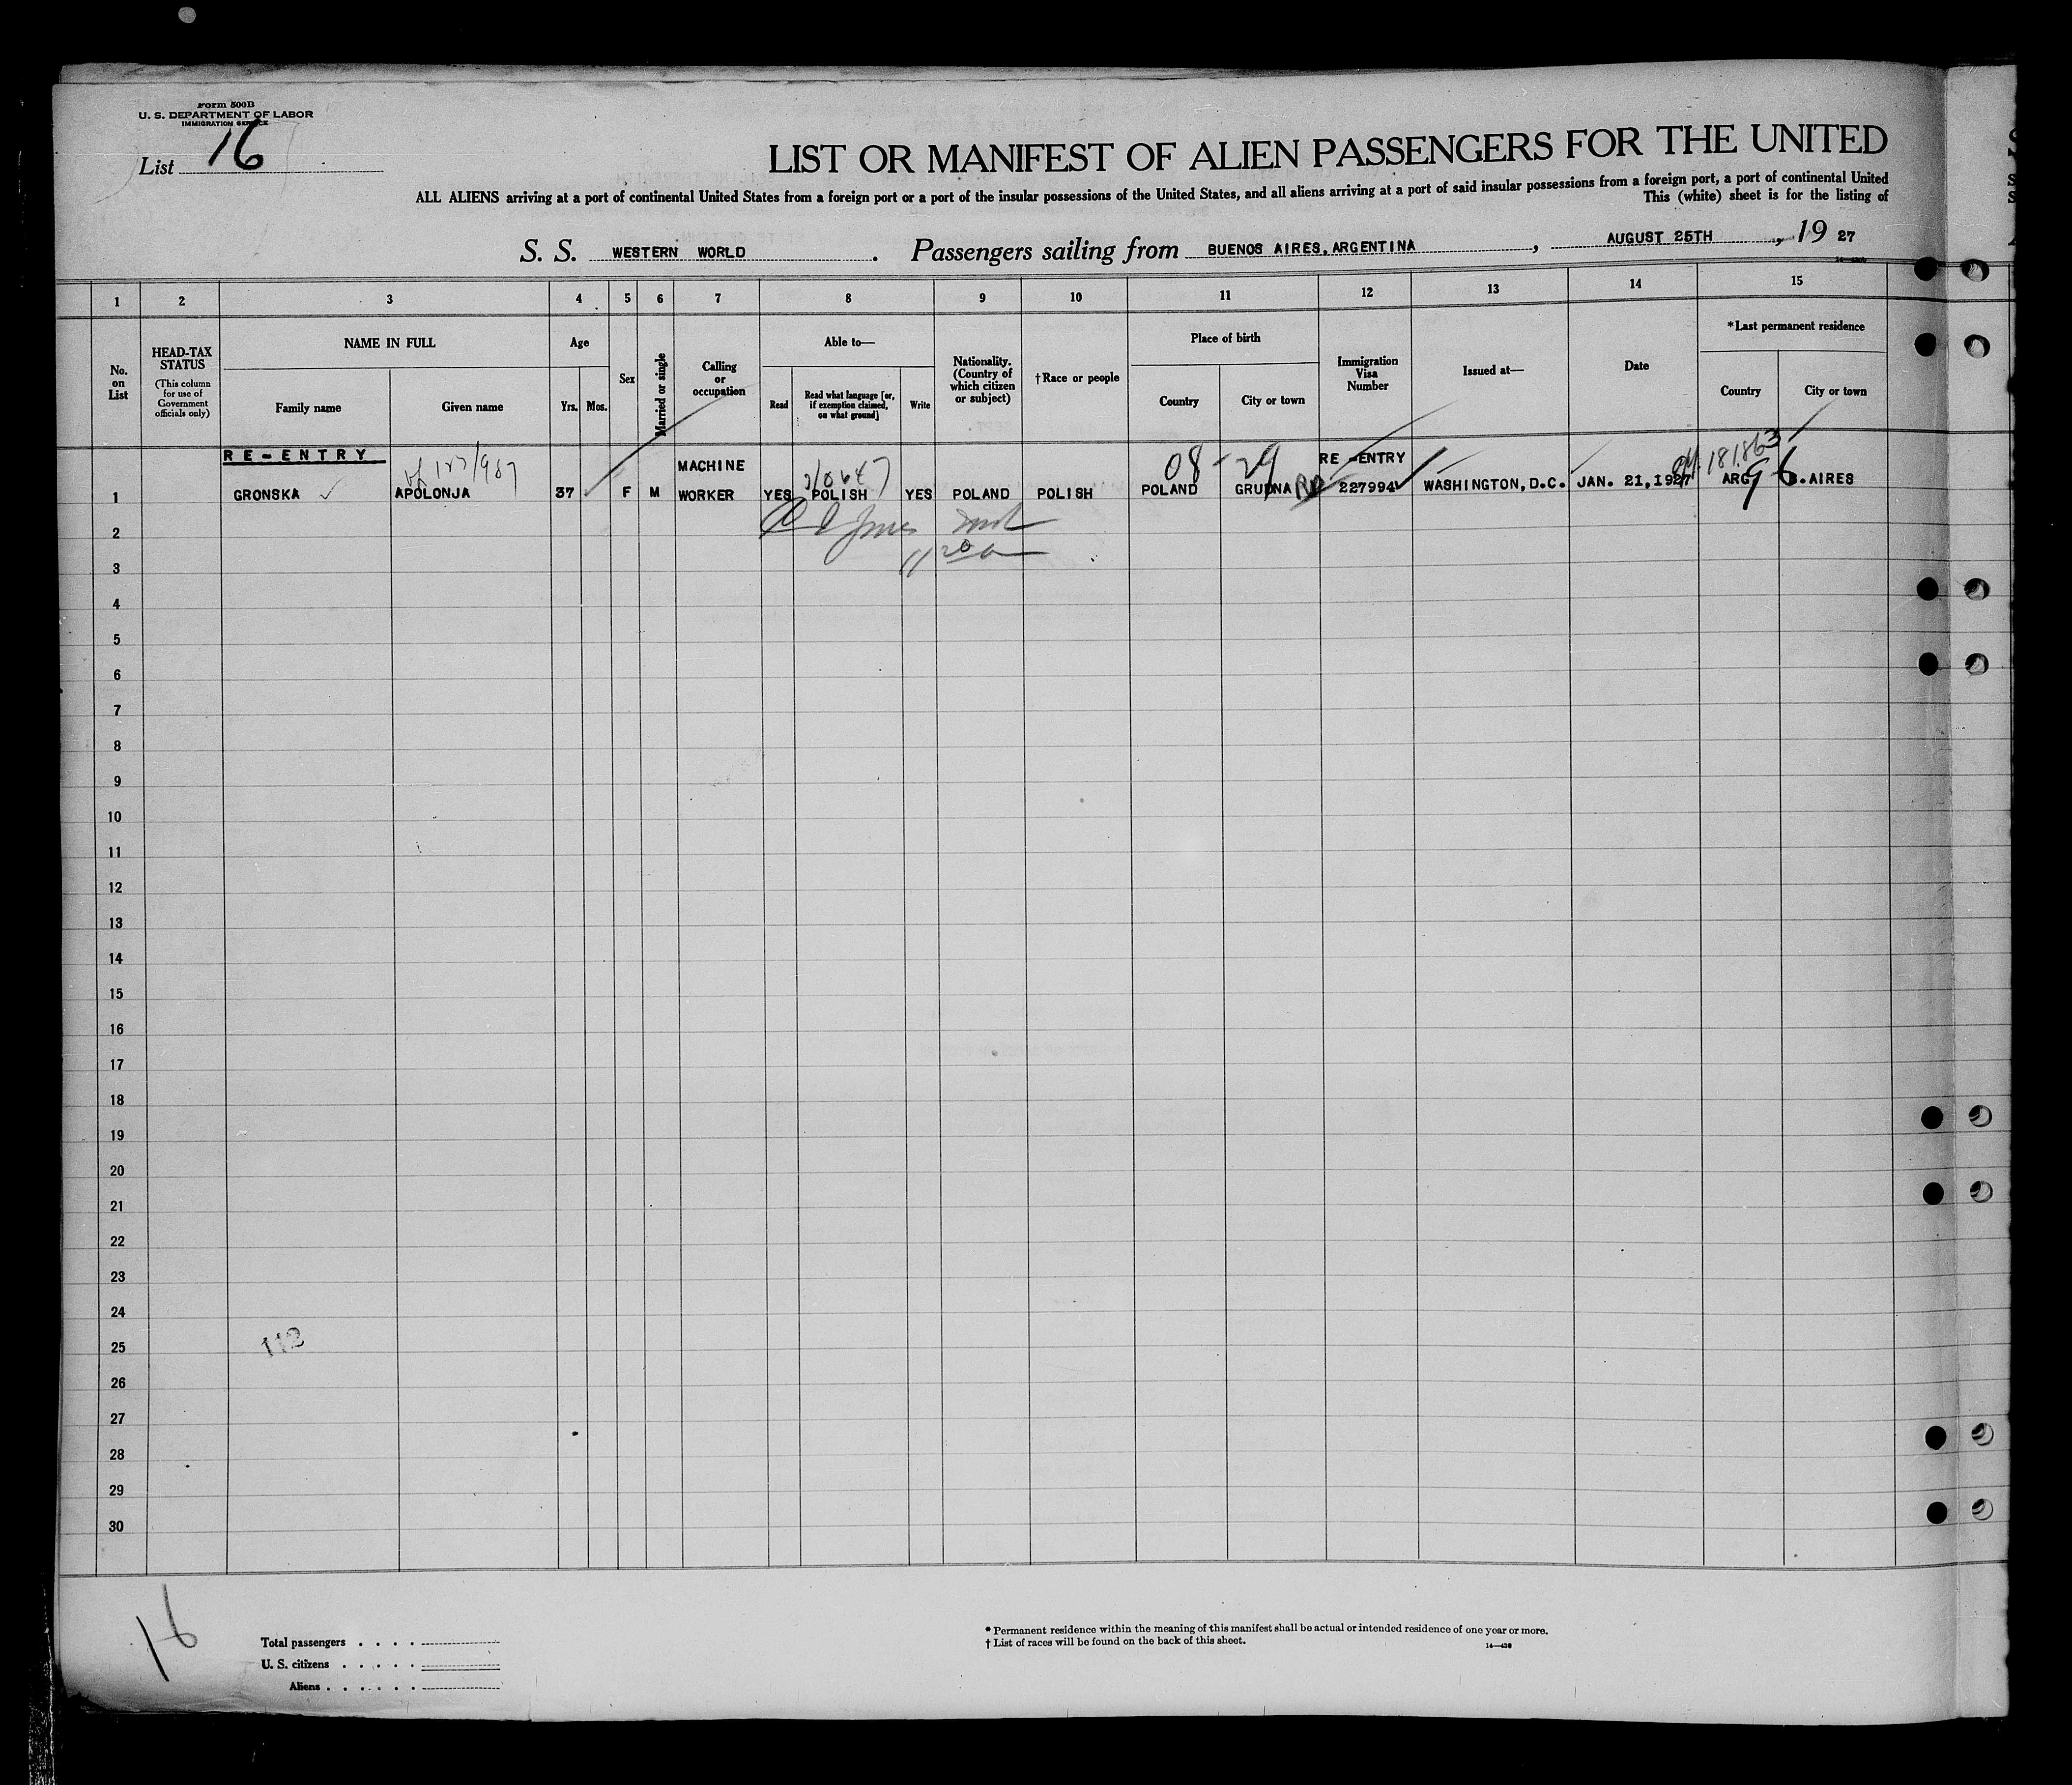 Form 500B
U. S. DEPARTMENT OF LABOR
IMMIGRATION SERVICE
List 16
LIST OR MANIFEST OF ALIEN PASSENGERS FOR THE UNITED
ALL ALIENS arriving at a port of continental United States from a foreign port or a port of the insular possessions of the United States, and all aliens arriving at a port of said insular possessions from a foreign port, a port of continental United
This (white) sheet is for the listing of
S. S. WESTERN WORLD . Passengers sailing from BUENOS AIRES, ARGENTINA , AUGUST 25TH , 19 27
1 2 3 4 5 6 7 8 9 10 11 12 13 14 15
No. on List
HEAD-TAX STATUS
(This column for use of Government officials only)
NAME IN FULL
Family name Given name
Age
Yrs. Mos.
Sex
Married or single
Calling or occupation
Able to—
Read
Read what language [or, if exemption claimed, on what ground]
Write
Nationality. (Country of which citizen or subject)
†Race or people
Place of birth
Country City or town
Immigration Visa Number
Issued at—
Date
*Last permanent residence
Country City or town
RE-ENTRY
MACHINE 08-29 RE-ENTRY 181863
1 GRONSKA APOLONJA 37 F M WORKER YES POLISH YES POLAND POLISH POLAND GRUDNA 227994 WASHINGTON, D.C. JAN. 21, 1927 ARG 96 B. AIRES
2
3
4
5
6
7
8
9
10
11
12
13
14
15
16
17
18
19
20
21
22
23
24
25 112
26
27
28
29
30
16
Total passengers . . . .
U. S. citizens . . . . .
Aliens . . . . . .
* Permanent residence within the meaning of this manifest shall be actual or intended residence of one year or more.
† List of races will be found on the back of this sheet.
14—430